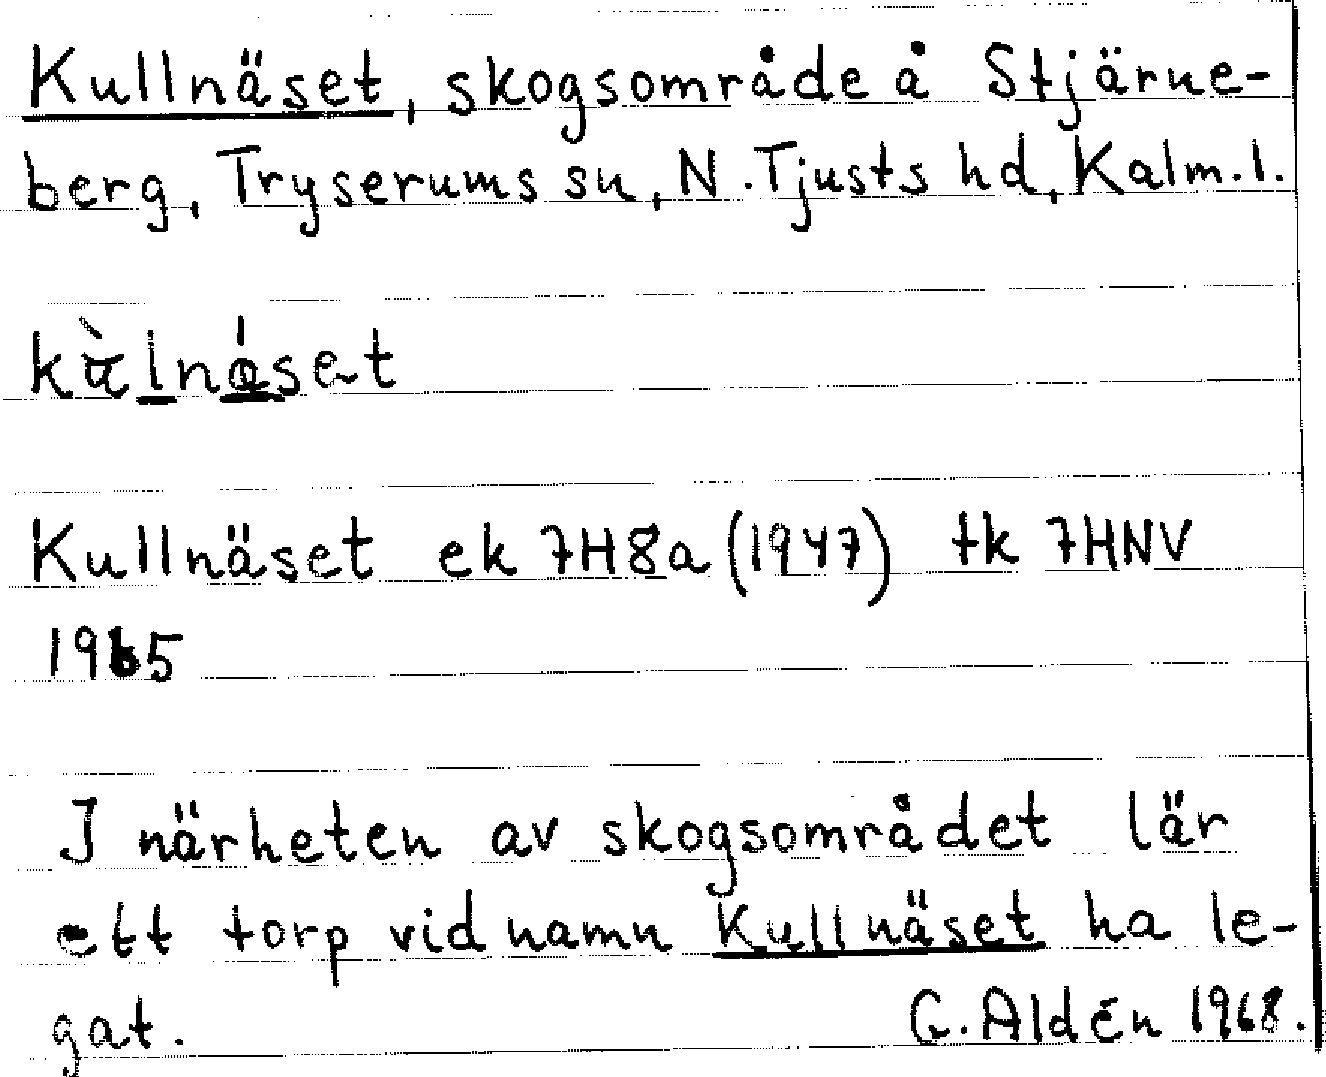 Kullnäset, skogsområde å Stjärne-
berg, Tryserums sn, N. Tjusts hd, Kalm. l.
Kullnäset ek 7H8a (1947) tk 7HNV
1965
I närheten av skogsområdet lär
ett torp vid namn Kullnäset ha le-
gat.
G. Aldén 1968.